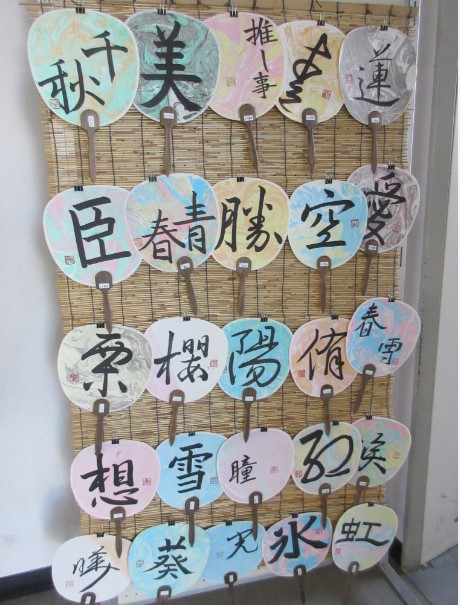 千秋
美
推し事
蓮
臣
青春
勝
空
愛
栗
櫻
陽
侑
春雪
想
雪
瞳
葵
氷
虹